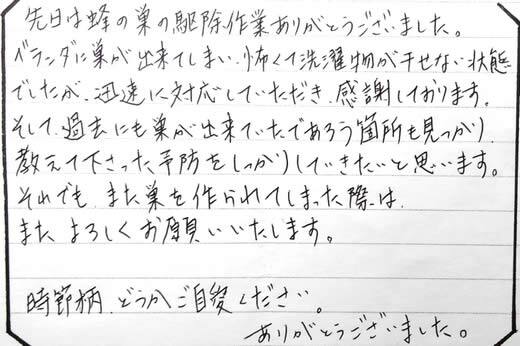 先日は蜂の巣の駆除作業ありがとうございました。
ベランダに巣が出来てしまい、怖くて洗濯物が干せない状態
でしたが、迅速に対応していただき、感謝しております。
そして、過去にも巣が出来ていたであろう箇所も見つかり、
教えて下さった予防をしっかりしていきたいと思います。
それでも、また巣を作られてしまった際は、
また、よろしくお願いいたします。
時節柄、どうかご自愛ください。
ありがとうございました。